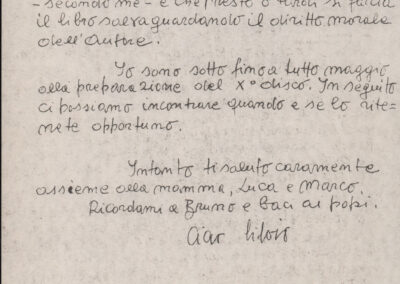 - secondo me - è che presto o tardi si faccia
il libro salvaguardando il diritto morale
dell'Autore.
Io sono sotto fino a tutto maggio
alla preparazione del X° disco. In seguito
ci possiamo incontrare quando e se lo rite=
nete opportuno.
Intanto ti saluto caramente
assieme alla mamma, Luca e Marco.
Ricordami a Bruno e baci ai popi.
Ciao Silvio